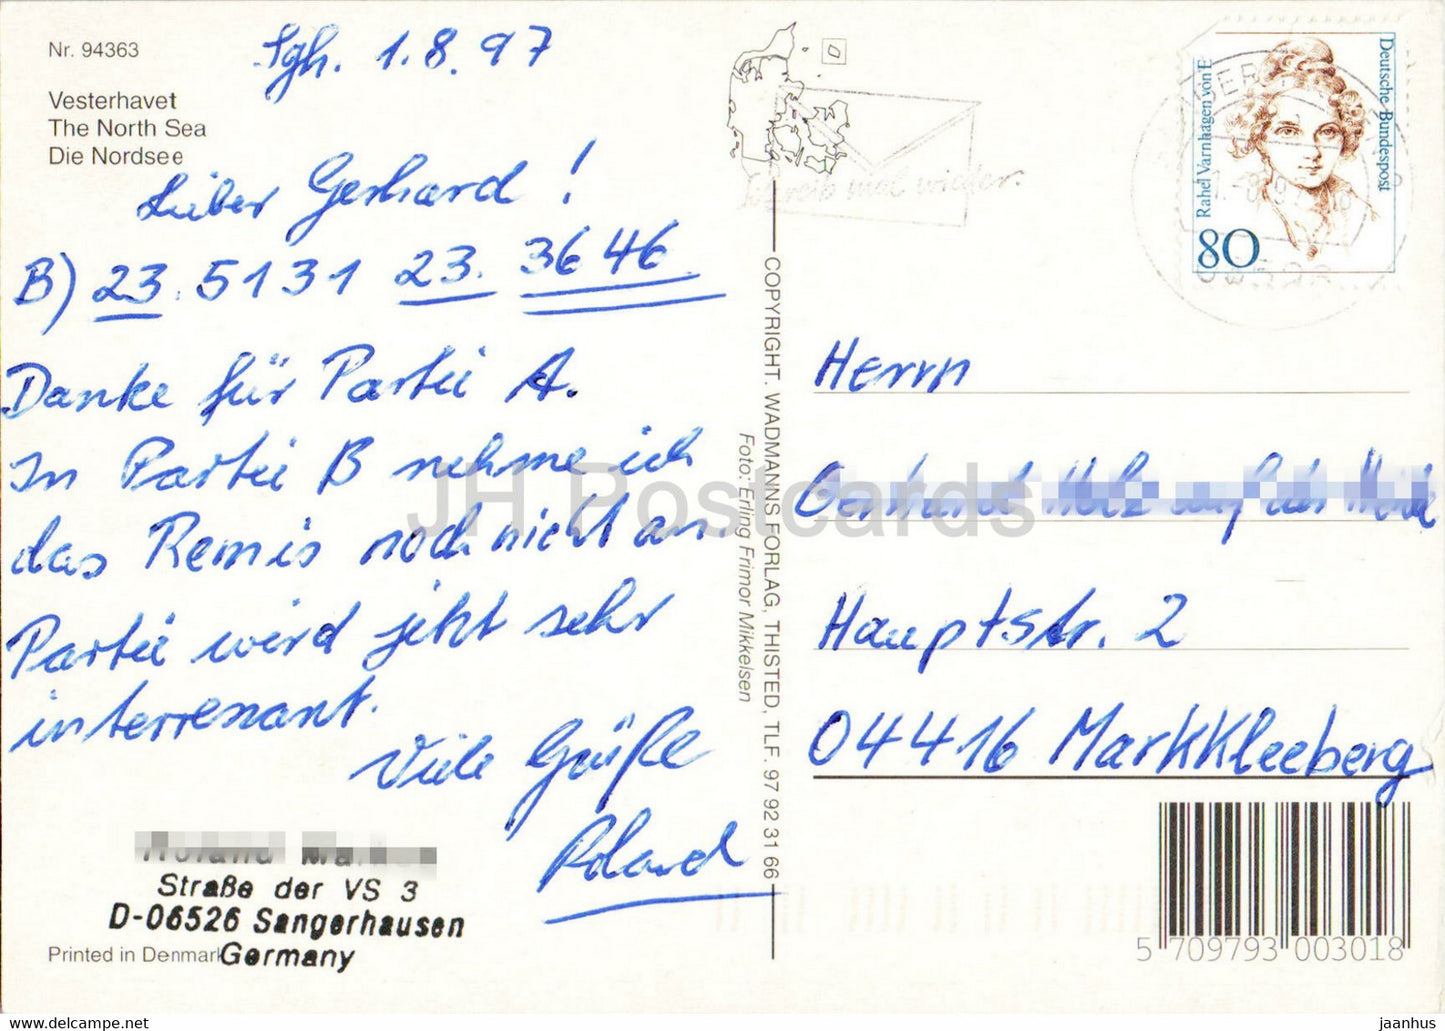 Nr. 94363
Vesterhavet
The North Sea
Die Nordsee
Sgh. 1.8.97
Lieber Gerhard!
B) 23. 5131 23. 3646.
Danke für Partie A.
In Partie B nehme ich
das Remis noch nicht an.
Partie wird jetzt sehr
interresant.
Viele Grüße
Roland
Straße der VS 3
D-06526 Sangerhausen
Germany
Printed in Denmark
COPYRIGHT. WADMANNS FORLAG, THISTED, TLF. 97 92 31 66
Foto: Erling Frimor Mikkelsen
Schreib mal wieder.
Deutsche Bundespost
Rahel Varnhagen von E
80
Herrn
auf der
Hauptstr. 2
04416 Markkleeberg
5 709793 003018
JH Postcards
jaanhus